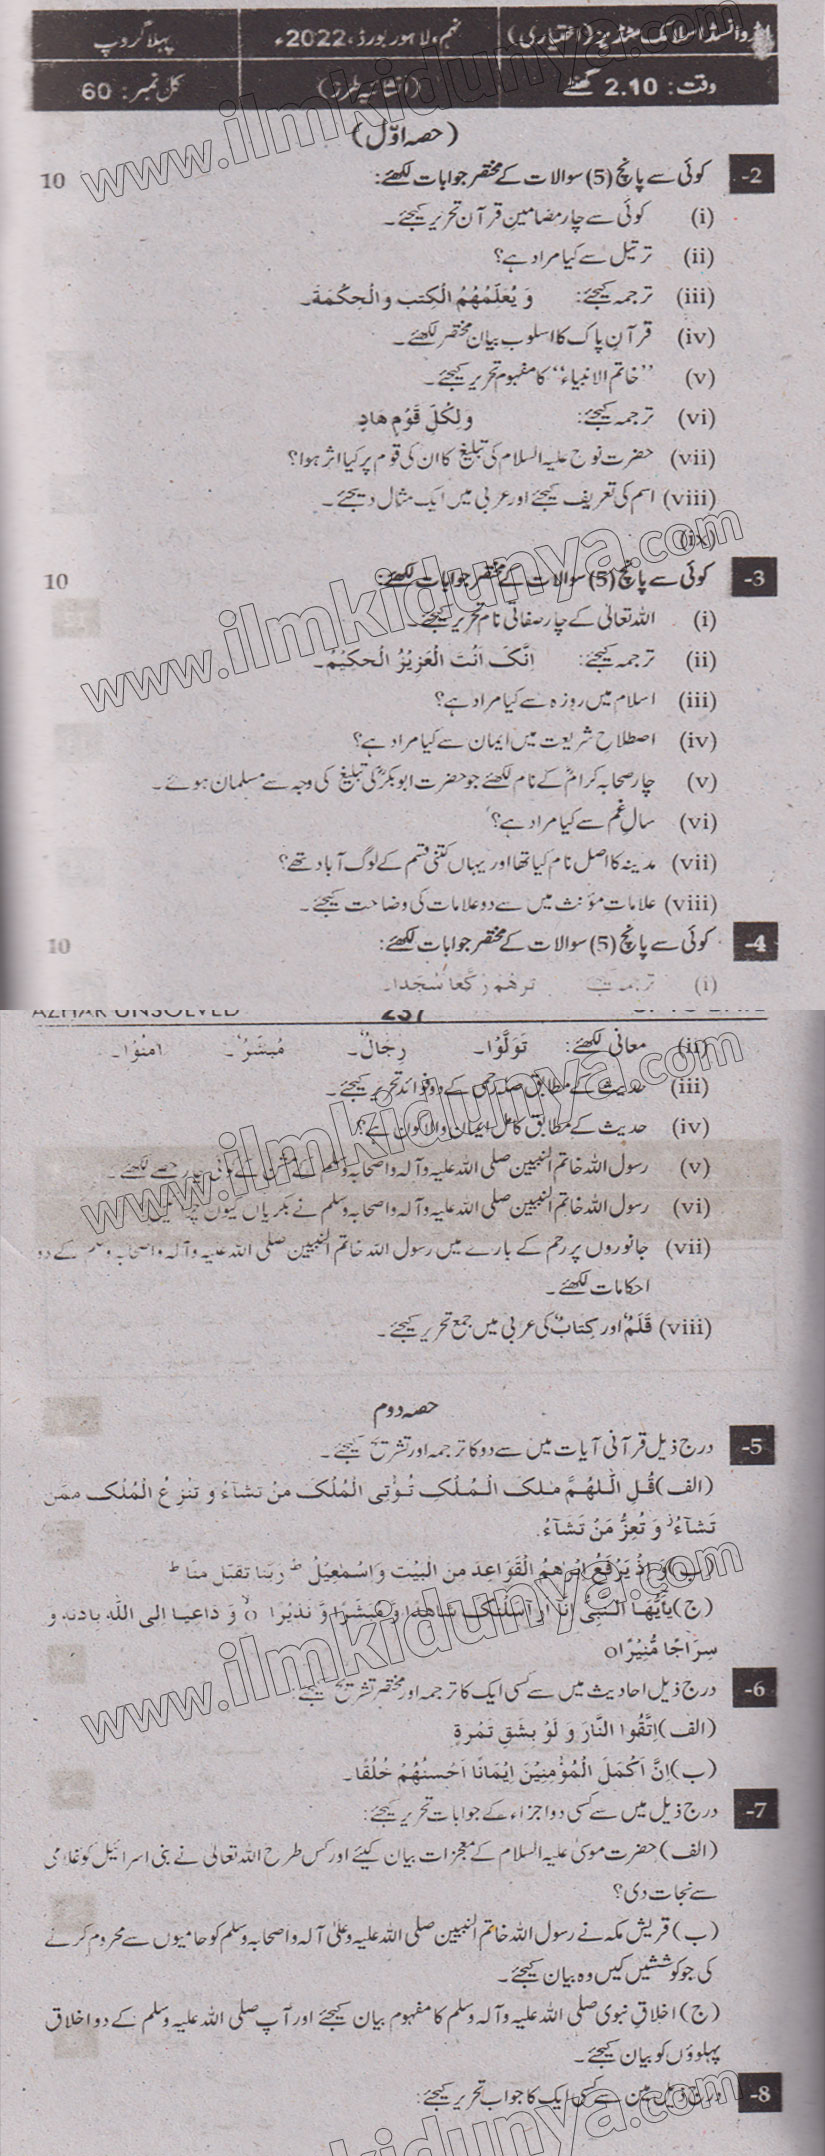 ایڈوانسڈ اسلامک سٹڈیز (اختیاری) نہم، لاہور بورڈ، 2022ء پہلا گروپ
وقت: 2.10 گھنٹے (انشائیہ طرز) کل نمبر: 60
(حصہ اوّل)
2- کوئی سے پانچ (5) سوالات کے مختصر جوابات لکھئے: 10
(i) کوئی سے چار مضامینِ قرآن تحریر کیجئے۔
(ii) ترتیل سے کیا مراد ہے؟
(iii) ترجمہ کیجئے: وَ يُعَلِّمُهُمُ الْكِتٰبَ وَالْحِكْمَةَ۔
(iv) قرآنِ پاک کا اسلوب بیان مختصر لکھئے۔
(v) ’’خاتم الانبیاء‘‘ کا مفہوم تحریر کیجئے۔
(vi) ترجمہ کیجئے: وَلِكُلِّ قَوْمٍ هَادٍ
(vii) حضرت نوح علیہ السلام کی تبلیغ کا ان کی قوم پر کیا اثر ہوا؟
(viii) اسم کی تعریف کیجئے اور عربی میں ایک مثال دیجئے۔
(ix)
3- کوئی سے پانچ (5) سوالات کے مختصر جوابات لکھئے: 10
(i) اللہ تعالیٰ کے چار صفاتی نام تحریر کیجئے۔
(ii) ترجمہ کیجئے: اِنَّکَ اَنْتَ الْعَزِيْزُ الْحَكِيْمُ۔
(iii) اسلام میں روزہ سے کیا مراد ہے؟
(iv) اصطلاحِ شریعت میں ایمان سے کیا مراد ہے؟
(v) چار صحابہ کرامؓ کے نام لکھئے جو حضرت ابوبکرؓ کی تبلیغ کی وجہ سے مسلمان ہوئے۔
(vi) سالِ غم سے کیا مراد ہے؟
(vii) مدینہ کا اصل نام کیا تھا اور یہاں کتنی قسم کے لوگ آباد تھے؟
(viii) علاماتِ مؤنث میں سے دو علامات کی وضاحت کیجئے۔
4- کوئی سے پانچ (5) سوالات کے مختصر جوابات لکھئے: 10
(i) ترجمہ تَرٰهُمْ رُكَّعًا سُجَّدًا۔
AZHAR UNSOLVED 237 UP TO DATE
(ii) معانی لکھئے: تَوَلَّوْا۔ رِجَالٌ۔ مُبَشِّرٌ۔ اٰمَنُوْا۔
(iii) حدیث کے مطابق صلہ رحمی کے دو فوائد تحریر کیجئے۔
(iv) حدیث کے مطابق کامل ایمان والا کون ہے؟
(v) رسول اللہ خاتم النبیین صلی اللہ علیہ وآلہ واصحابہ وسلم کے مشن کے کوئی چار حصے لکھئے۔
(vi) رسول اللہ خاتم النبیین صلی اللہ علیہ وآلہ واصحابہ وسلم نے بکریاں کیوں
(vii) جانوروں پر رحم کے بارے میں رسول اللہ خاتم النبیین صلی اللہ علیہ وآلہ واصحابہ وسلم کے دو
احکامات لکھئے۔
(viii) قَلَمٌ اور كِتَابٌ کی عربی میں جمع تحریر کیجئے۔
حصہ دوم
5- درج ذیل قرآنی آیات میں سے دو کا ترجمہ اور تشریح کیجئے۔
(الف) قُلِ اللّٰهُمَّ مٰلِكَ الْمُلْكِ تُؤْتِى الْمُلْكَ مَنْ تَشَآءُ وَ تَنْزِعُ الْمُلْكَ مِمَّنْ
تَشَآءُ وَ تُعِزُّ مَنْ تَشَآءُ
(ب) وَ اِذْ يَرْفَعُ اِبْرٰهٖمُ الْقَوَاعِدَ مِنَ الْبَيْتِ وَاِسْمٰعِيْلُ ط رَبَّنَا تَقَبَّلْ مِنَّا ط
(ج) يٰۤاَيُّهَا النَّبِىُّ اِنَّا اَرْسَلْنٰكَ شَاهِدًا وَّ مُبَشِّرًا وَّ نَذِيْرًا o وَّ دَاعِيًا اِلَى اللّٰهِ بِاِذْنِهٖ وَ
سِرَاجًا مُّنِيْرًا o
6- درج ذیل احادیث میں سے کسی ایک کا ترجمہ اور مختصر تشریح کیجئے:
(الف) اِتَّقُوا النَّارَ وَ لَوْ بِشَقِّ تَمْرَةٍ
(ب) اِنَّ اَكْمَلَ الْمُؤْمِنِيْنَ اِيْمَانًا اَحْسَنُهُمْ خُلُقًا۔
7- درج ذیل میں سے کسی دو اجزاء کے جوابات تحریر کیجئے:
(الف) حضرت موسیٰ علیہ السلام کے معجزات بیان کیجئے اور کس طرح اللہ تعالیٰ نے بنی اسرائیل کو غلامی
سے نجات دی؟
(ب) قریش مکہ نے رسول اللہ خاتم النبیین صلی اللہ علیہ وعلیٰ آلہ واصحابہ وسلم کو حامیوں سے محروم کرنے
کی جو کوششیں کیں وہ بیان کیجئے۔
(ج) اخلاقِ نبوی صلی اللہ علیہ وآلہ وسلم کا مفہوم بیان کیجئے اور آپ صلی اللہ علیہ وسلم کے دو اخلاق
پہلوؤں کو بیان کیجئے۔
8- درج ذیل میں سے کسی ایک کا جواب تحریر کیجئے:
www.ilmkidunya.com
www.ilmkidunya.com
www.ilmkidunya.com
www.ilmkidunya.com
www.ilmkidunya.com